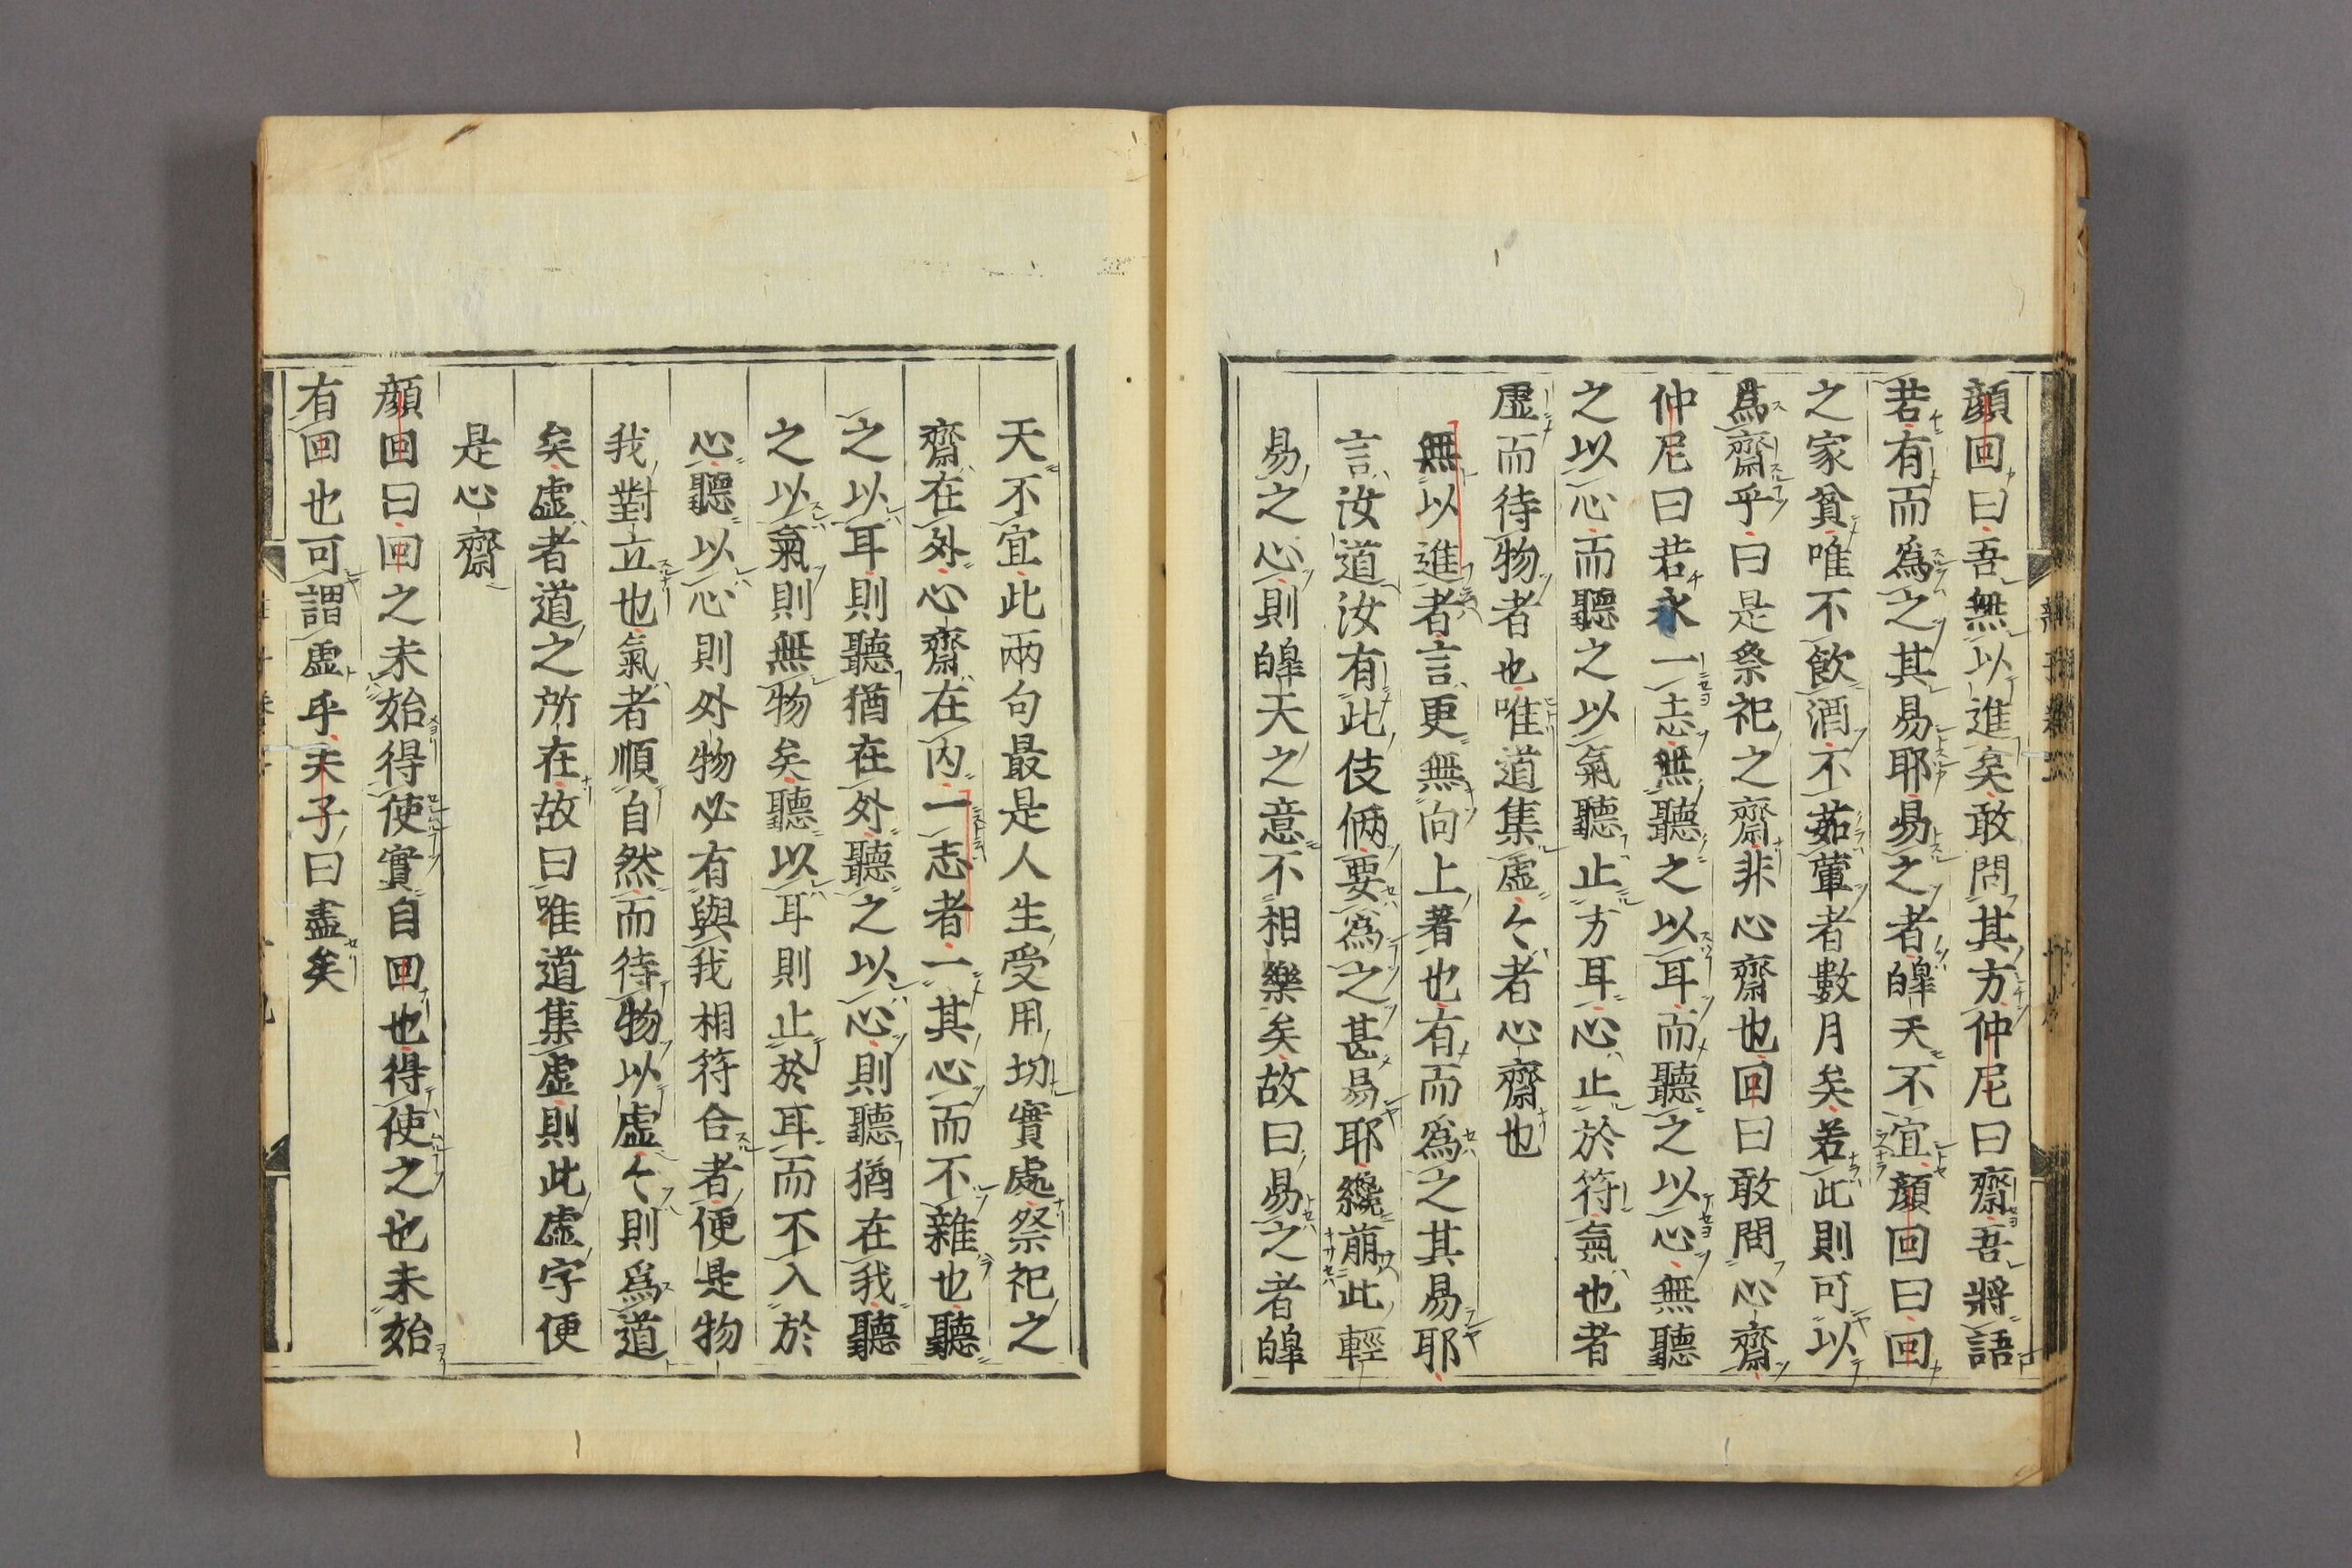 顔回曰吾無以進矣敢問其方仲尼曰齋吾將語
若有而爲之其易耶易之者皥天不宜顔回曰回
之家貧唯不飲酒不茹葷者數月矣若此則可以
爲齋乎曰是祭祀之齋非心齋也回曰敢問心齋
仲尼曰若一志無聽之以耳而聽之以心無聽
之以心而聽之以氣聽止於耳心止於符氣也者
虛而待物者也唯道集虛〻者心齋也
無以進者言更無向上著也有而爲之其易耶
言汝道汝有此伎倆要爲之甚易耶纔萠此輕
易之心則皥天之意不相樂矣故曰易之者皥
天不宜此兩句最是人生受用切實處祭祀之
齋在外心齋在内一志者一其心而不雜也聽
之以耳則聽猶在外聽之以心則聽猶在我聽
之以氣則無物矣聽以耳則止於耳而不入於
心聽以心則外物必有與我相符合者便是物
我對立也氣者順自然而待物以虛〻則爲道
矣虛者道之所在故曰唯道集虛則此虛字便
是心齋
顔回曰回之未始得使實自回也得使之也未始
有回也可謂虛乎夫子曰盡矣